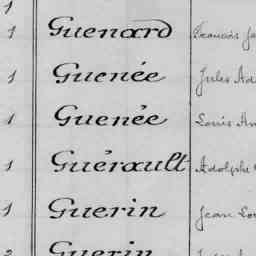 1
1 Guenard François
1 Guenée Jules
1 Guenée Louis
1 Guérault Adolphe
1 Guerin Jean
2 Guerin